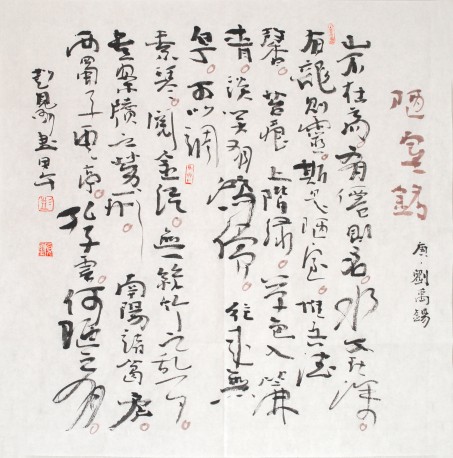 陋室銘
唐·劉禹錫
山不在高。有僊則名。水不在深。
有龍則靈。斯是陋室。惟吾德
馨。苔痕上階綠。草色入簾
青。談笑有鴻儒。往來無
白丁。可以調
素琴。閱金經。無絲竹之亂耳。
無案牘之勞形。南陽諸葛廬。
西蜀子雲亭。孔子雲。何陋之有。
書甲午